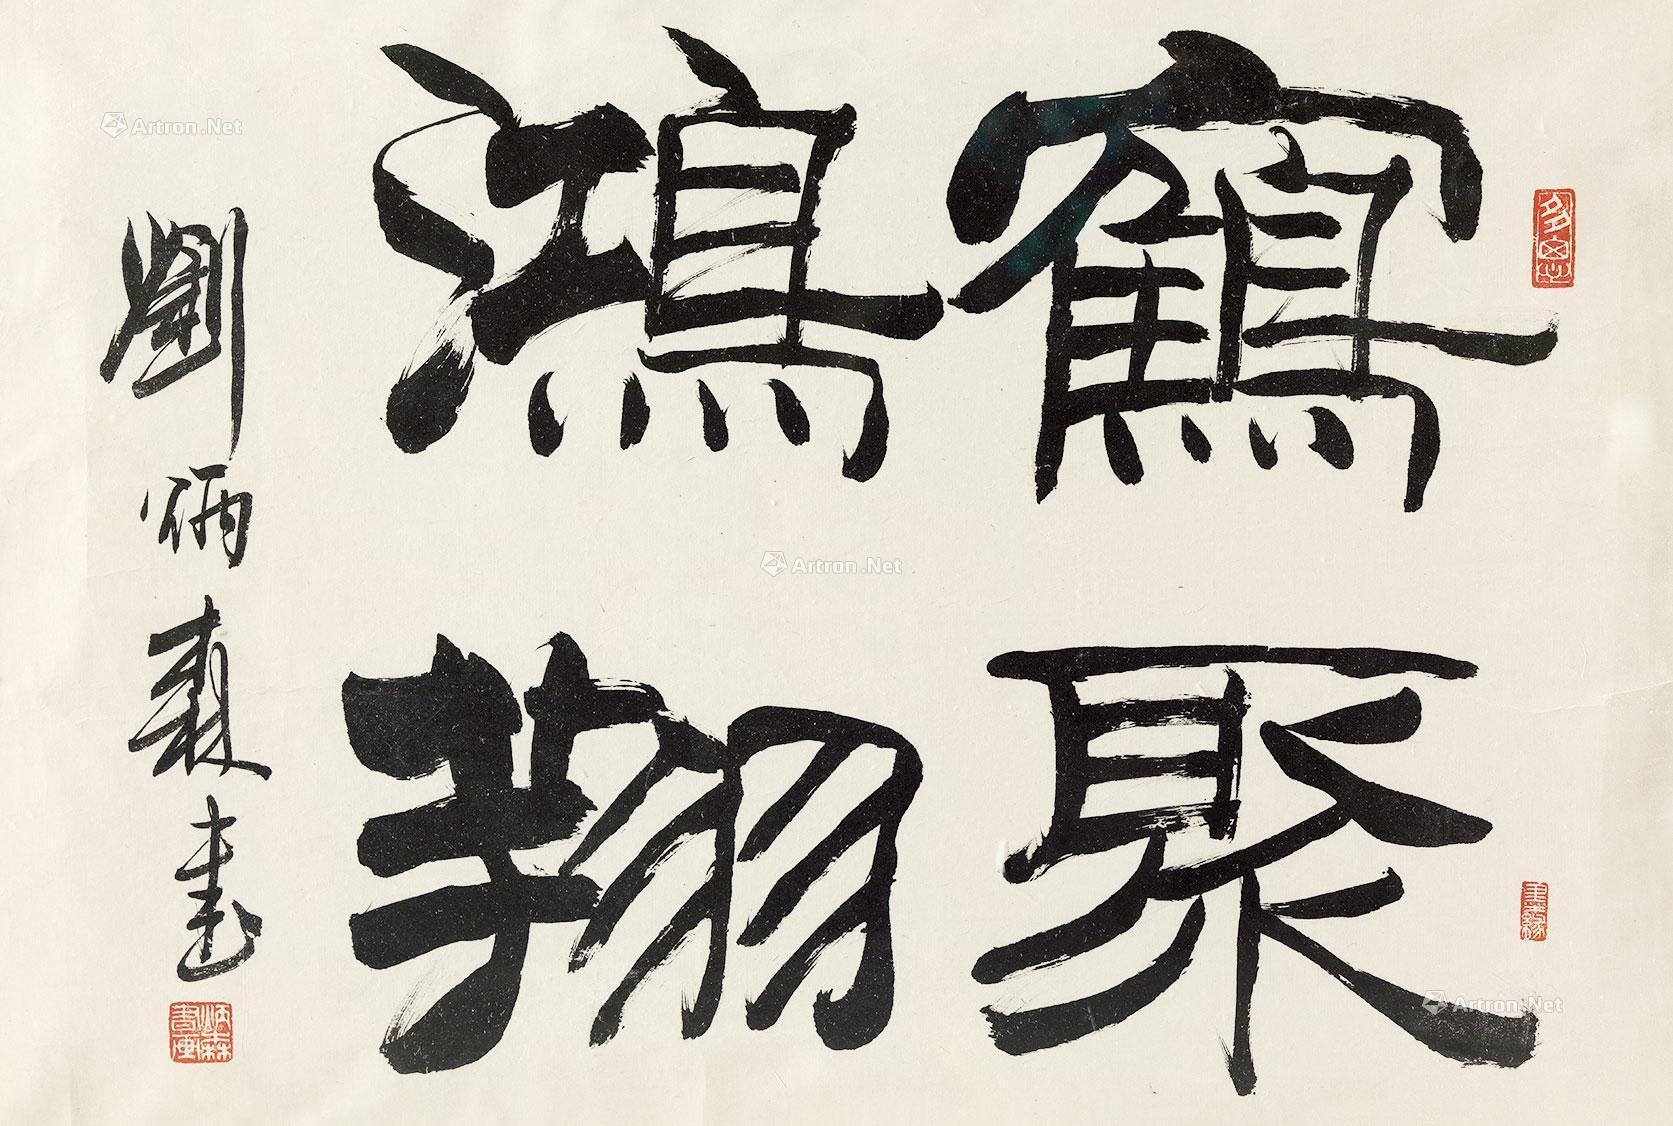 鶴聚
鴻翔
劉炳森書
炳森書畫
墨緣
Artron.Net
Artron.Net
Artron.Net